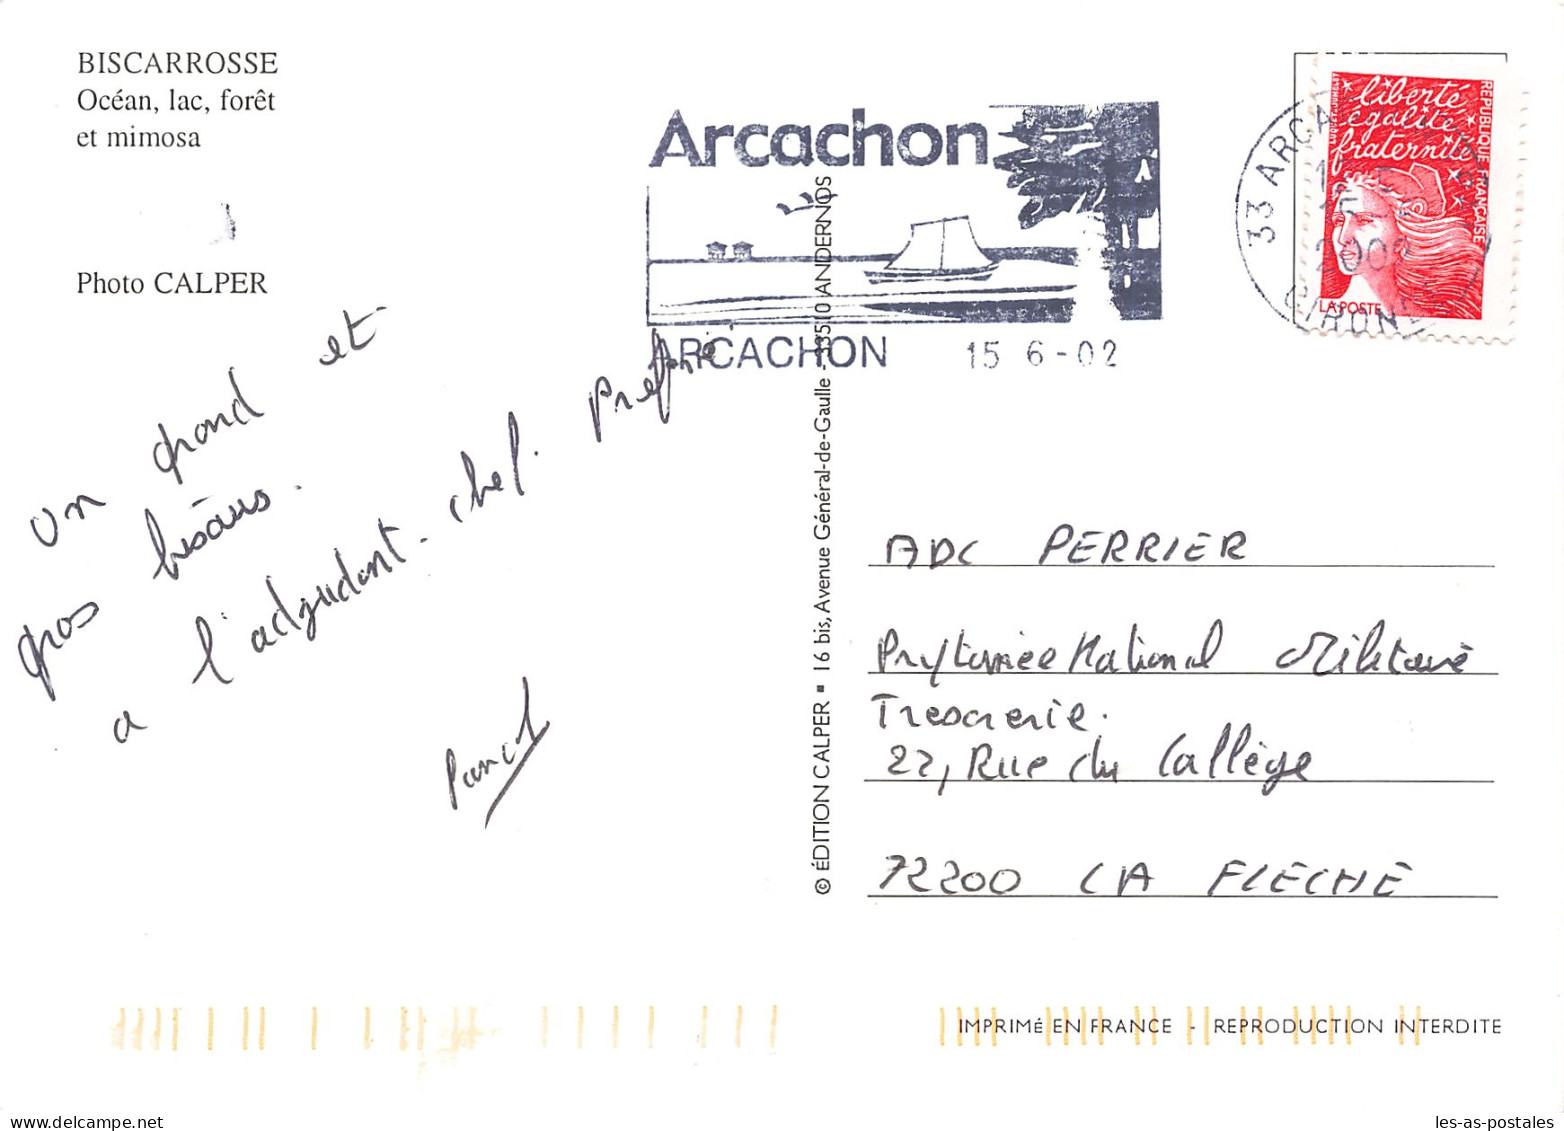 BISCARROSSE
Océan, lac, forêt
et mimosa
Photo CALPER
Un grand et
gros bisous.
a l'adjudant-chef. Préféré
Arcachon
ARCACHON 15 6-02
33 ARCA
2002
GIRONDE
liberté
égalité
fraternité
RÉPUBLIQUE FRANÇAISE
LA POSTE
© ÉDITION CALPER ▪ 16 bis, Avenue Général-de-Gaulle - 33510 ANDERNOS
ADC PERRIER
Prytanée National Militaire
Tresorerie.
22, Rue du Collège
72200 LA FLECHE
IMPRIMé EN FRANCE - REPRODUCTION INTERDITE
www.delcampe.net
les-as-postales